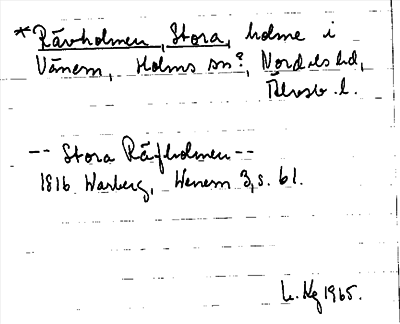 *Rävholmen, Stora, holme i
Vänern, Holms sn?, Nordals hd,
Älvsb. l.
-- Stora Räfholmen --
1816 Warberg, Wenern 3, s. 61.
1965.